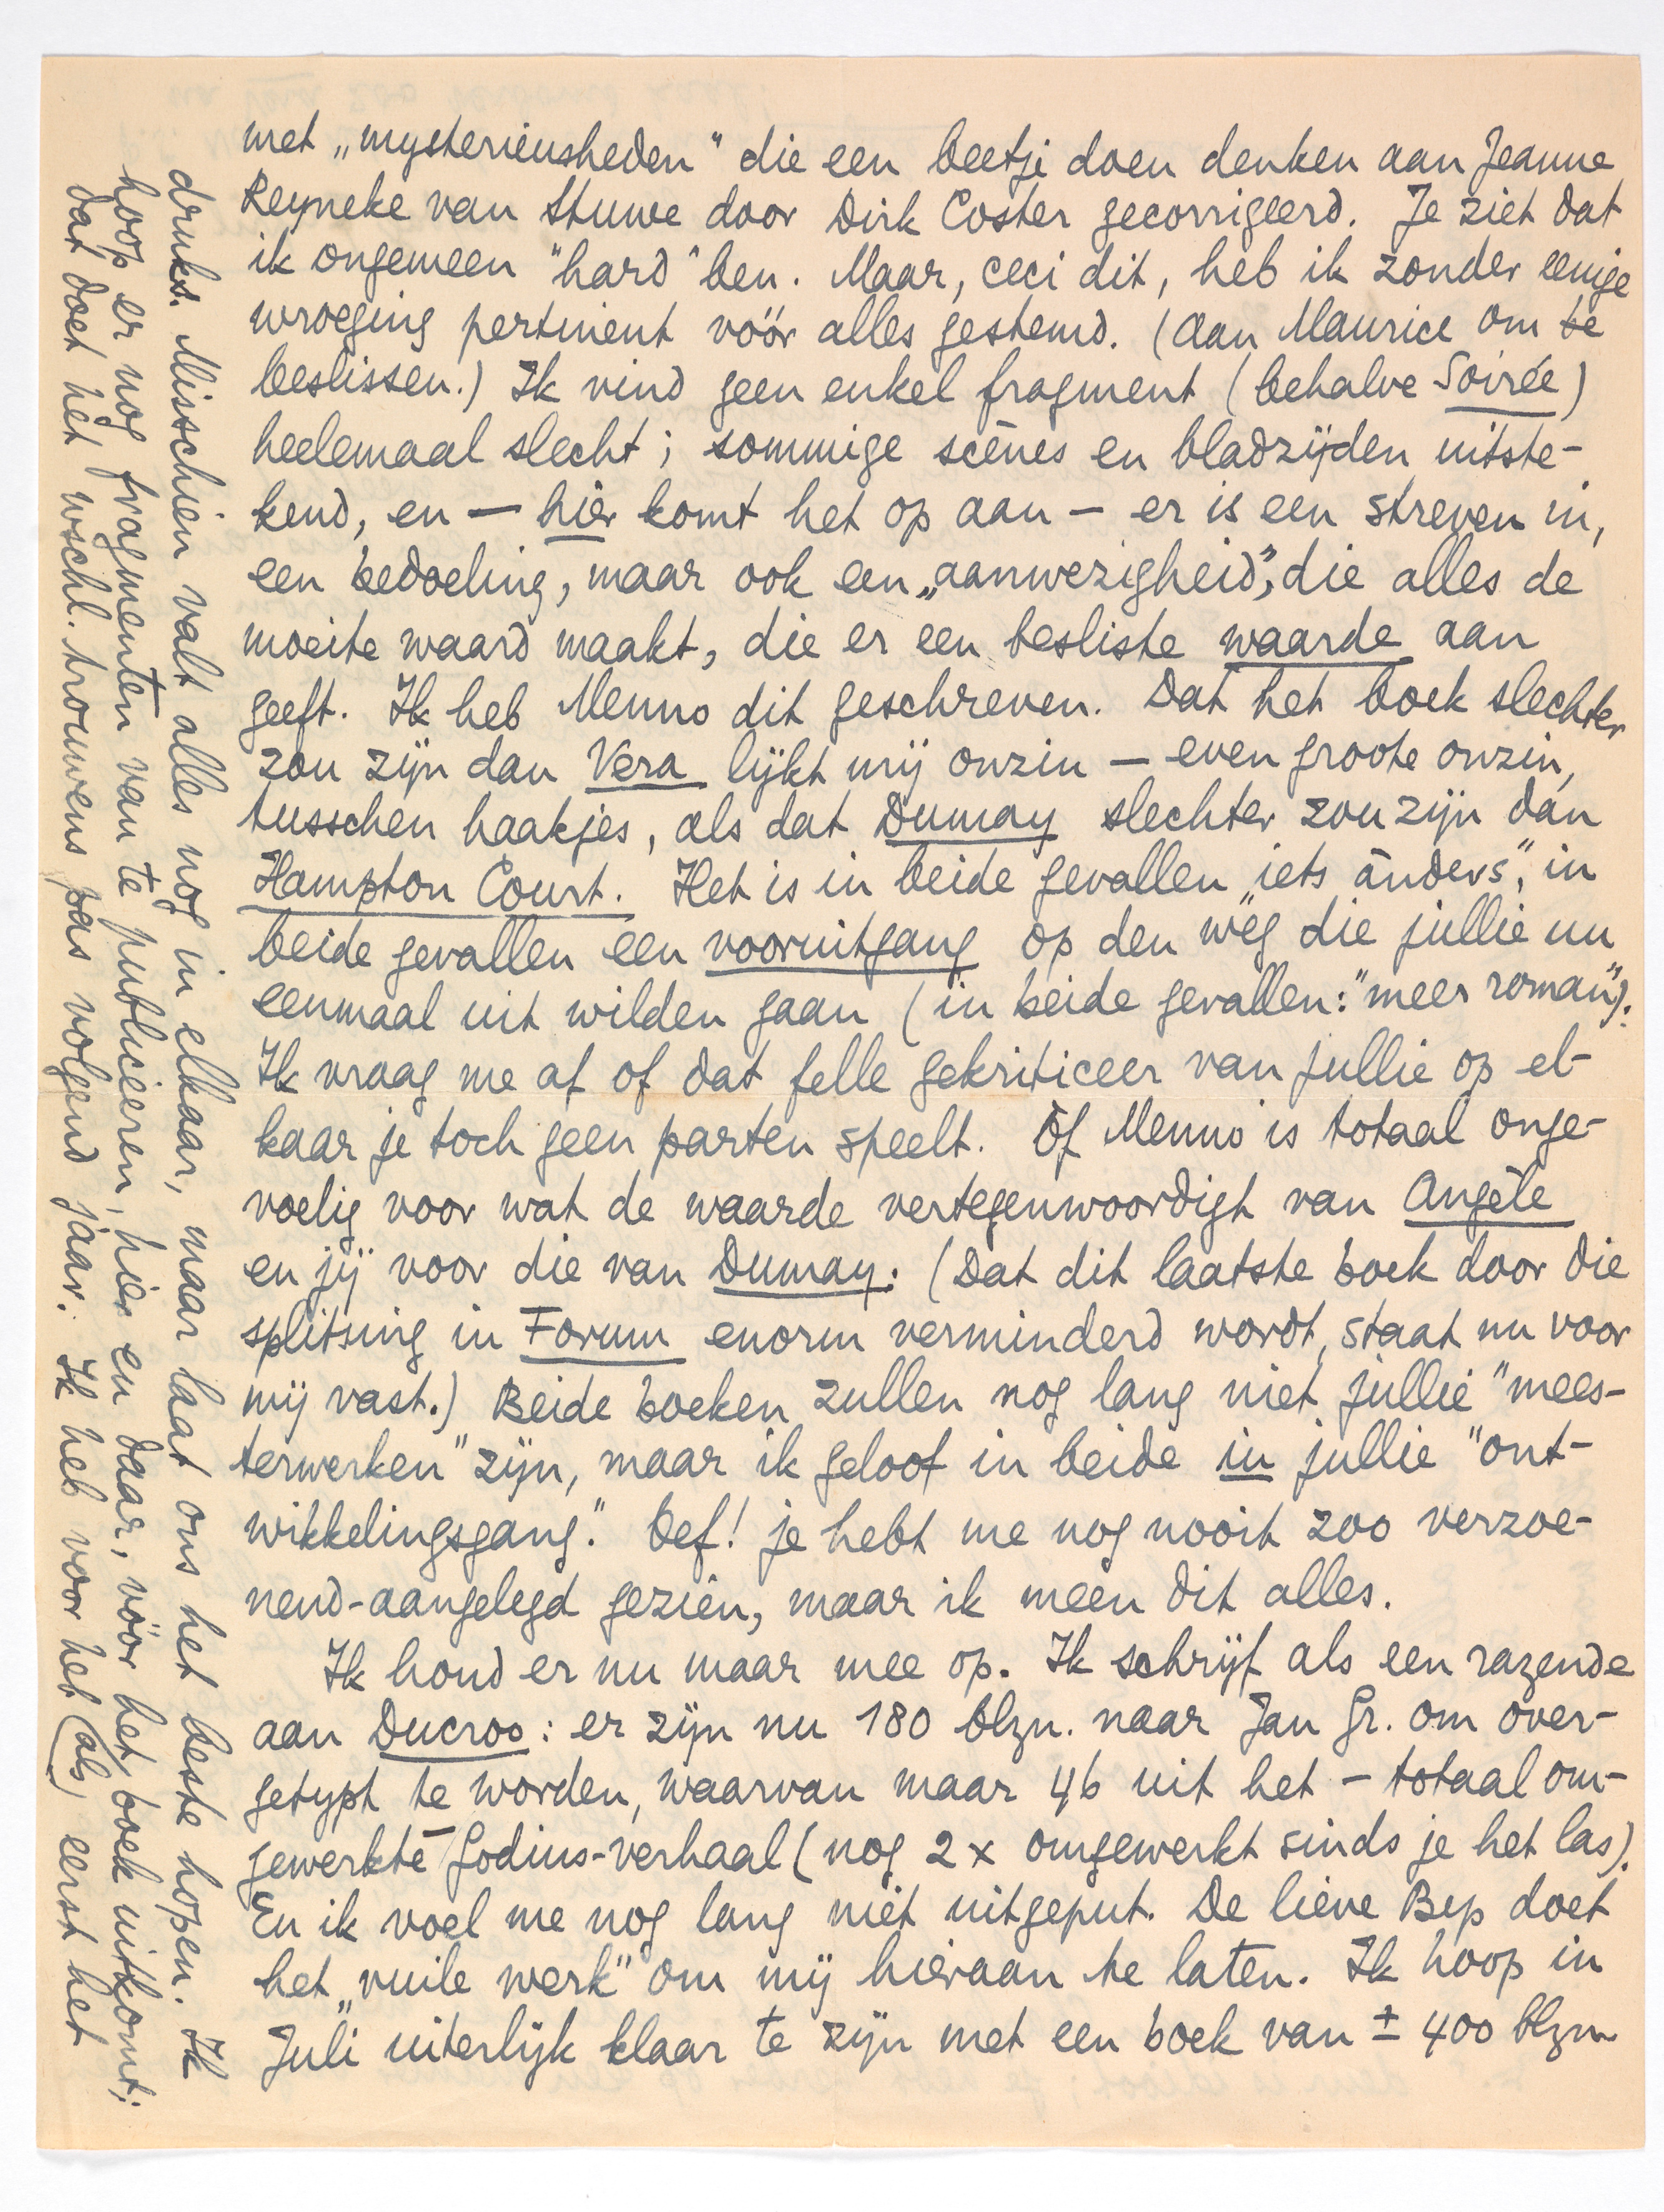 met „mysterieusheden" die een beetje doen denken aan Jeanne
Reyneke van Stuwe door Dirk Coster gecorrigeerd. Je ziet dat
ik ongemeen "hard" ben. Maar, ceci dit, heb ik zonder eenige
wroeging pertinent vóór alles gestemd. (Aan Maurice om te
beslissen.) Ik vind geen enkel fragment (behalve Soirée)
heelemaal slecht; sommige scènes en bladzijden uitste-
kend, en — hier komt het op aan — er is een streven in,
een bedoeling, maar ook een „aanwezigheid", die alles de
moeite waard maakt, die er een besliste waarde aan
geeft. Ik heb Menno dit geschreven. Dat het boek slechter
zou zijn dan Vera lijkt mij onzin — even groote onzin,
tusschen haakjes, als dat Dumay slechter zou zijn dan
Hampton Court. Het is in beide gevallen „iets ànders", in
beide gevallen een vooruitgang op den wèg die jullie nu
eenmaal uit wilden gaan (in beide gevallen: "meer roman").
Ik vraag me af of dat felle gekriticeer van jullie op el-
kaar je toch geen parten speelt. Òf Menno is totaal onge-
voelig voor wat de waarde vertegenwoordigt van Angèle
en jij voor die van Dumay. (Dat dit laatste boek door die
splitsing in Forum enorm verminderd wordt, staat nu voor
mij vast.) Beide boeken zullen nog lang niet jullie "mees-
terwerken" zijn, maar ik geloof in beide in jullie "ont-
wikkelingsgang." Oef! je hebt me nog nooit zoo verzoe-
nend-aangelegd gezien, maar ik meen dit alles.
Ik houd er nu maar mee op. Ik schrijf als een razende
aan Ducroo: er zijn nu 180 blzn. naar Jan Gr. om over-
getypt te worden, waarvan maar 46 uit het — totaal om-
gewerkte — Godius-verhaal (nog 2 x omgewerkt sinds je het las).
En ik voel me nog lang niet uitgeput. De lieve Bep doet
het „vuile werk" om mij hieraan te laten. Ik hoop in
Juli uiterlijk klaar te zijn met een boek van ± 400 blzn.
druks. Misschien valt alles nog in elkaar, maar laat ons het beste hopen. Ik
hoop er nog fragmenten van te publiceeren, hier en daar, vóór het boek uitkomt;
dat doet het wschl. trouwens pas volgend jaar. Ik heb voor het (als) eerst het